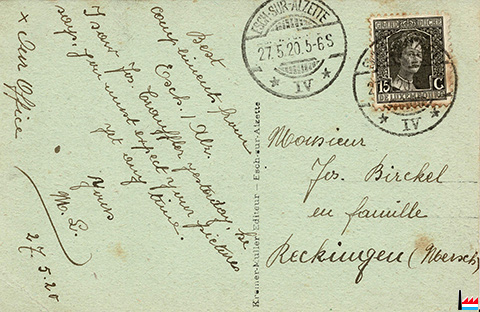 Best
compliments from
Esch / Alz.
I saw Jos. yesterday, he
says, you must expect your pictures
yet any time.
Yours
M. L.
27.5.20
x Office
Kramer-Muller Editeur – Esch-sur-Alzette
ESCH-SUR-ALZETTE
27.5.20.5-6S
* IV *
GRAND-DUCHÉ
DE LUXEMBOURG
15 C
* IV *
Monsieur
Jos. Birckel
en famille
Reckingen (Mersch)